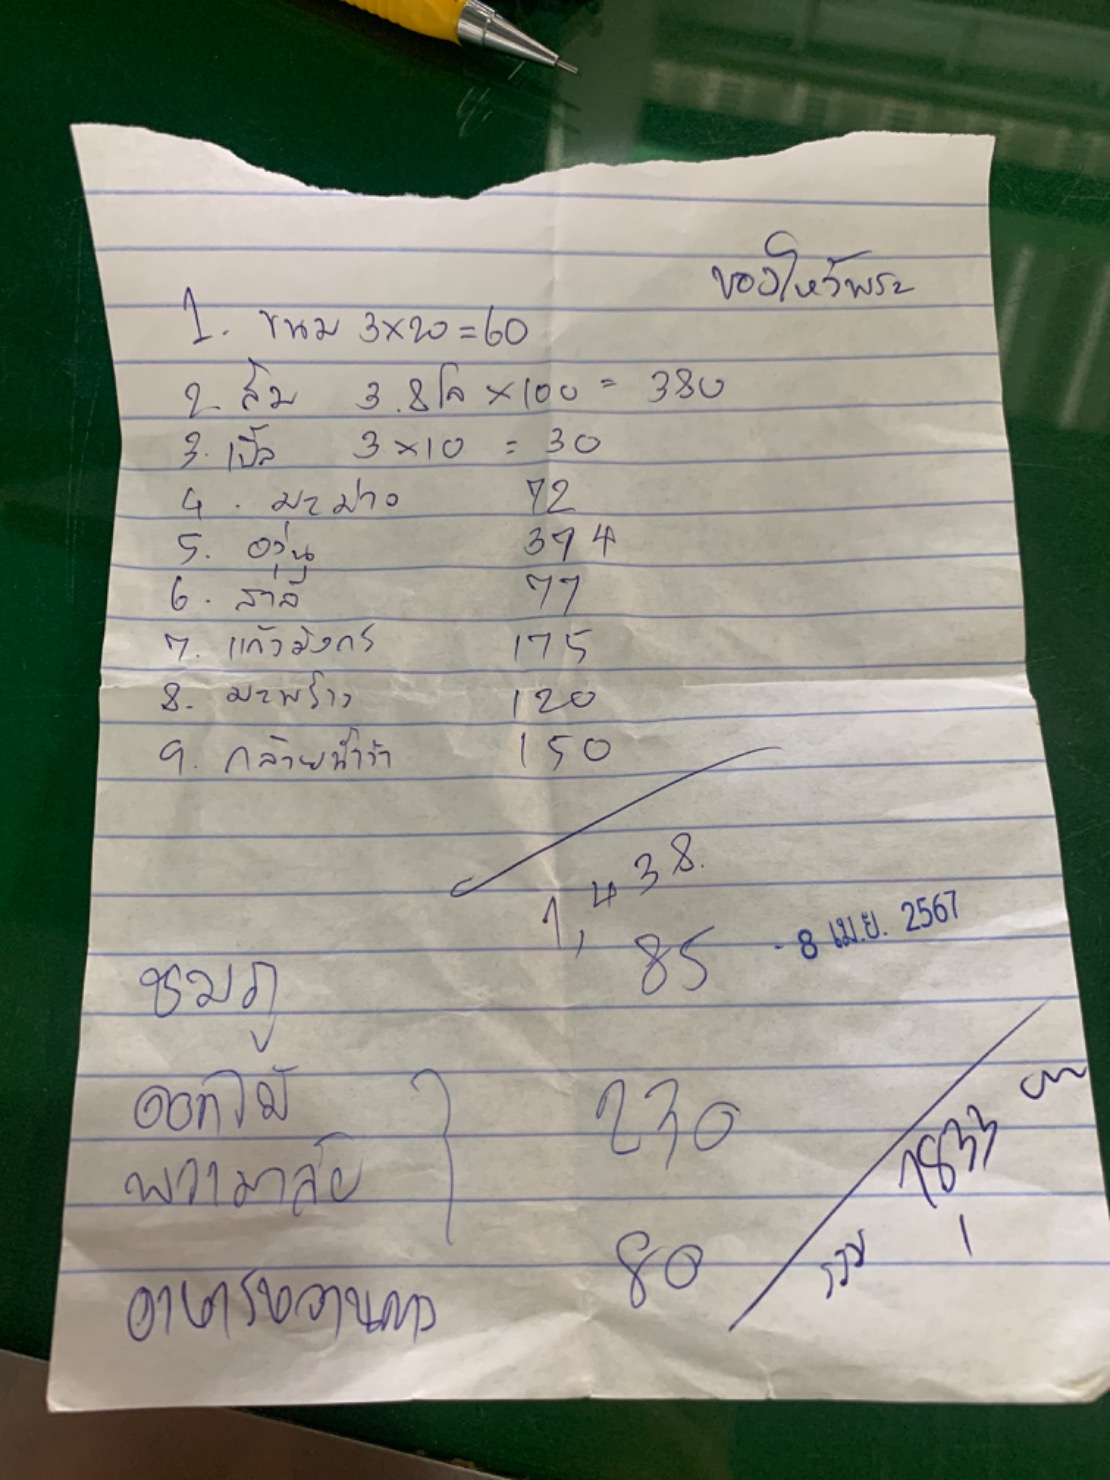 ของไหว้พระ
1. ขนม 3×20 = 60
2 ส้ม 3.8 โล ×100 = 380
3. เปิ้ล 3×10 = 30
4. มะม่วง 72
5. องุ่น 374
6. สาลี่ 77
7. แก้วมังกร 175
8. มะพร้าว 120
9. กล้วยน้ำว้า 150
1,438.
- 8 เม.ย. 2567
ชมภู 85
ดอกไม้
พวงมาลัย 230
อาหารหวานคาว 80
รวม 1,833